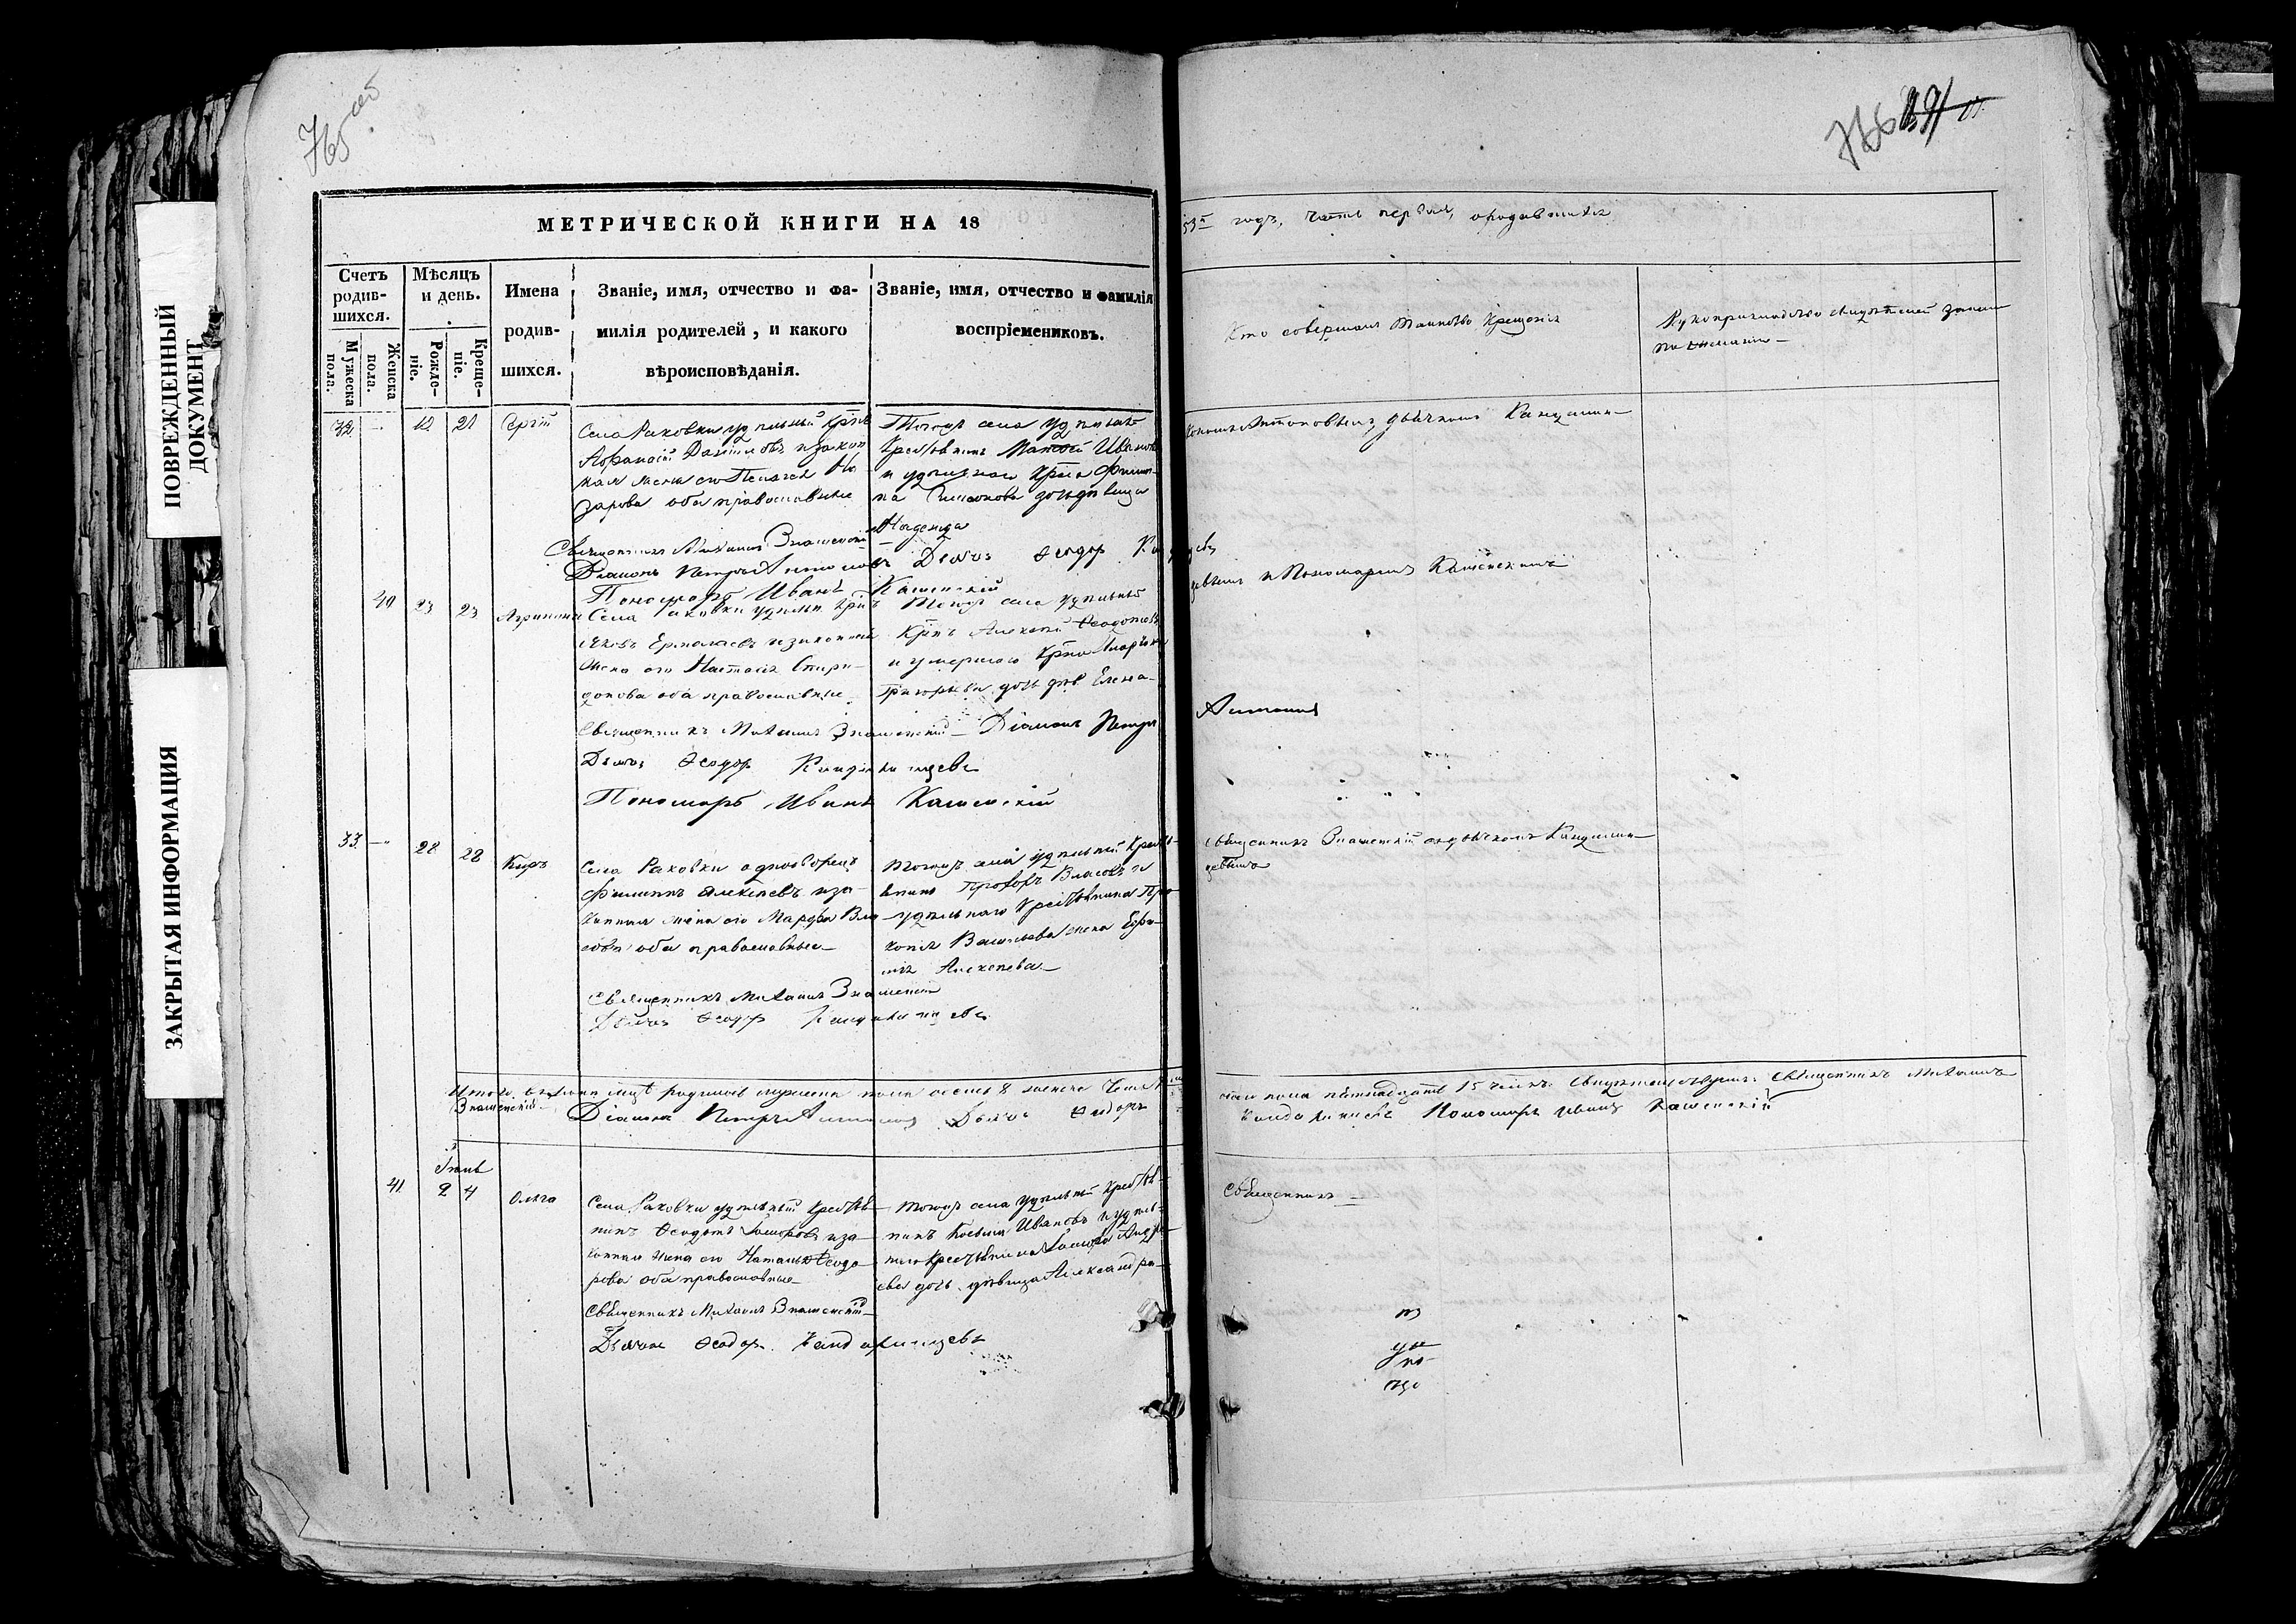 765 об
766
ПОВРЕЖДЕННЫЙ
ДОКУМЕНТ
ЗАКРЫТАЯ ИНФОРМАЦИЯ
МЕТРИЧЕСКОЙ КНИГИ НА 18
53й годъ, часть первая, о родившихся
Счетъ родив-шихся.
Мужеска пола.
Женска пола.
Мѣсяцъ и день.
Рожде-ніе.
Креще-ніе.
Имена родив-шихся.
Званіе, имя, отчество и фа-
милія родителей, и какого
вѣроисповѣданія.
Званіе, имя, отчество и фамилія
воспріемниковъ.
Кто совершалъ таинство крещенія
Рукоприкладство свидѣтелей записи
по желанію
32 12 21 Сергій
Села Раковки удѣльный крнъ
Аѳанасій Даниловъ и закон
ная жена его Пелагея На
зарова оба православные
Тогожъ села удѣльный
крестьянинъ Матвей Иванов
и удѣльнаго крна Филип
па Симонова дочь дѣвица
Надежда
Антоновымъ дьячкомъ Кандалин
Священникъ Михаилъ Знаменскій
Діаконъ Петръ Антоновъ Дьячокъ Ѳеодор
Пономарь Иванъ Каменскій
и Пономаремъ Каменскимъ
40 23 23 Агрипина
Села Раковки удѣльн. крнъ
Яковъ Ермолаевъ и законная
жена его Настасія Спири
донова оба православные
Тогожъ села удѣльный
крнъ Алексей Ѳеодотовъ
и умершаго крна
Григорьева дочь дѣв Елена
Священникъ Михаилъ Знаменскій Діаконъ Петръ Антоновъ
Дьячокъ Ѳеодор Кандалинцевъ
Пономарь Иванъ Каменскій
33 28 28 Киръ
Села Раковки однодворецъ
Филиппъ Алексѣевъ и за
конная жена его Марфа Вла
сова оба православные
Тогожъ села удѣльный кресть
янинъ Прохоръ Власовъ и
удѣльнаго крестьянина Про
копія Васильева жена Ефи
мія Алексѣева
Священникъ Знаменскій съ дьячкомъ Кандалин
цевымъ
Священникъ Михаилъ Знаменскій
Дьячокъ Ѳеодор Кандалинцевъ
Итого въ Іюлѣ мцѣ родилось мужеска пола восемь 8 женска
пола пятнадцать 15 челк. Свидѣтельствуемъ: Священникъ Михаилъ
Знаменскій Діаконъ Петръ Антоновъ Дьячокъ Ѳеодоръ
Кандалинцевъ Пономарь Иванъ Каменскій
41 2 4 Ольга
Села Раковки удѣльный крестьян
нинъ Ѳеодотъ и за
конная жена его Наталья Ѳеодо
рова оба православные
Тогожъ села удѣльный крестья
нинъ Козьма Ивановъ и удѣль
наго крестьянина Андре
ева дочь дѣвица Александра
Священникъ
Священникъ Михаилъ Знаменскій
Дьячокъ Ѳеодоръ Кандалинцевъ